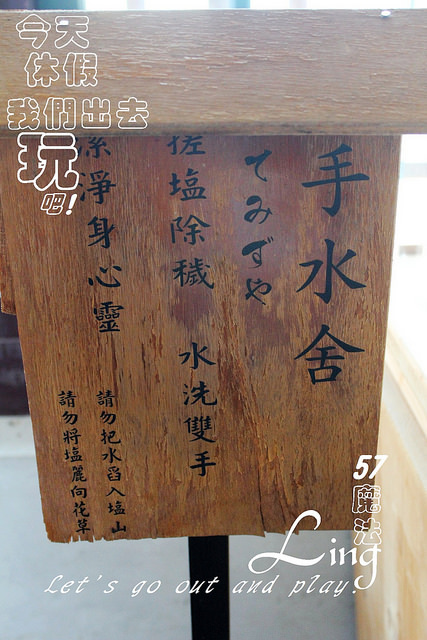 今天
休假
我們出去
玩
吧!
手水舍
てみずや
搓塩除穢 水洗雙手
淨身心靈
請勿把水舀入塩山
請勿將塩麗向花草
57
魔法
Ling
Let's go out and play!